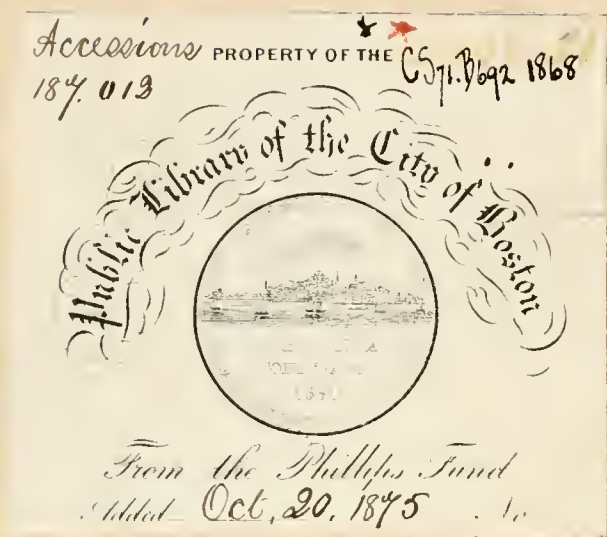 Accessions PROPERTY OF THE CS71.B692 1868
187.013
Public Library of the City of Boston
From the Phillips Fund
Added Oct. 20. 1875 No